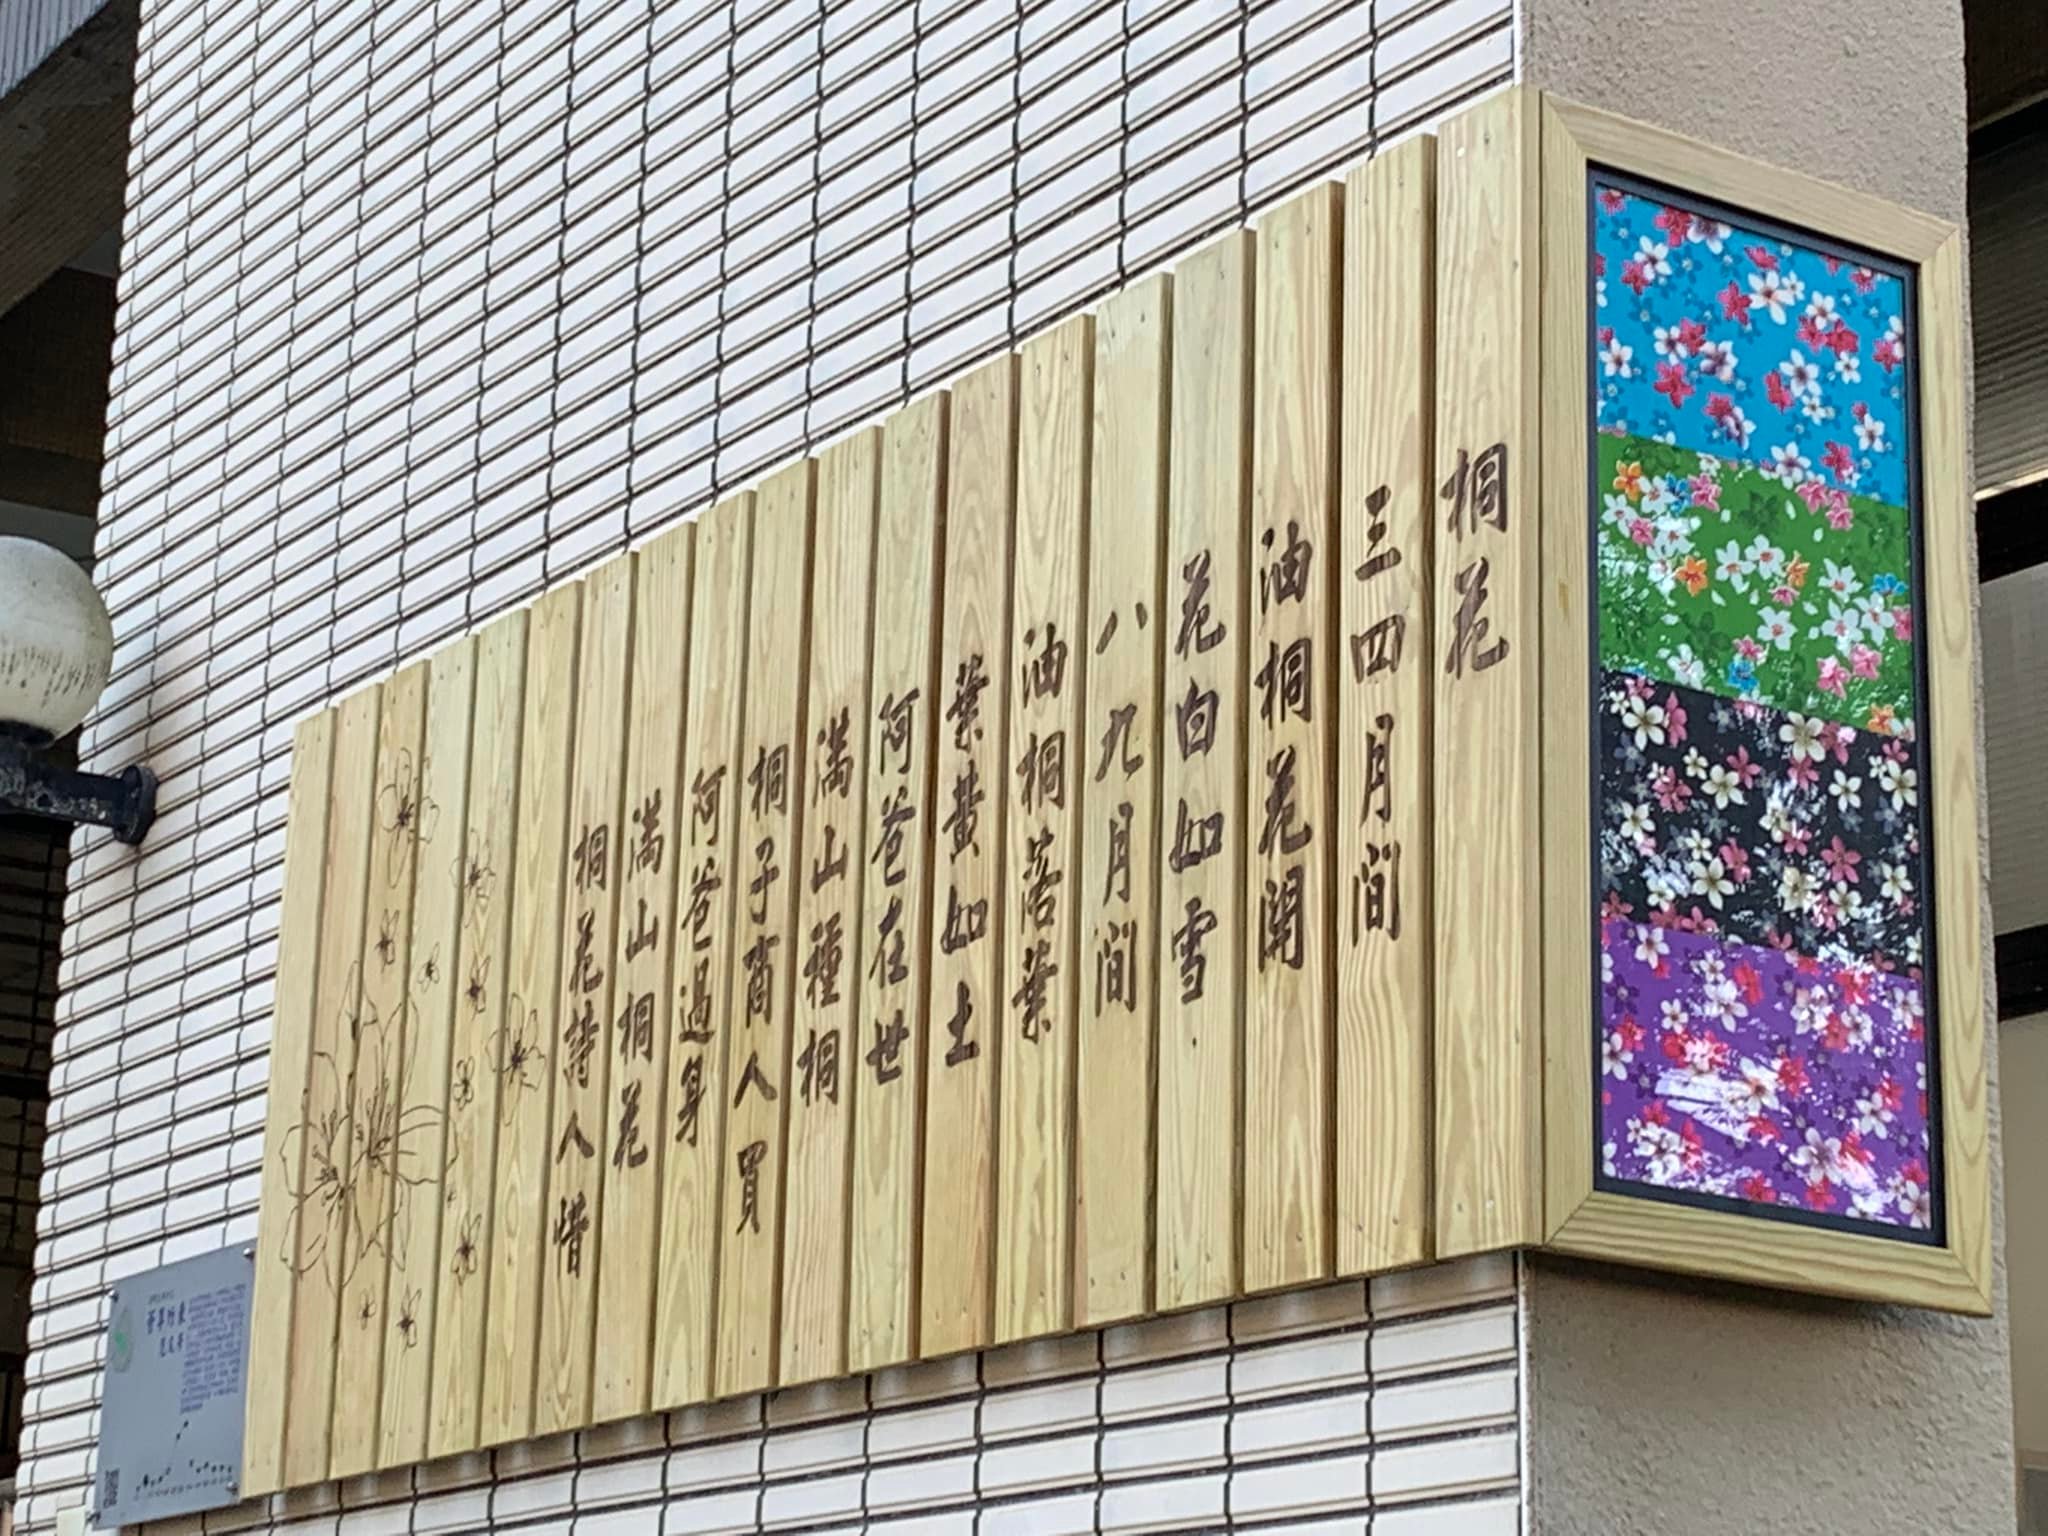 桐花
三四月間
油桐花開
花白如雪
八九月間
油桐落葉
葉黃如土
阿爸在世
滿山種桐
桐子商人買
阿爸過身
滿山桐花
桐花詩人惜